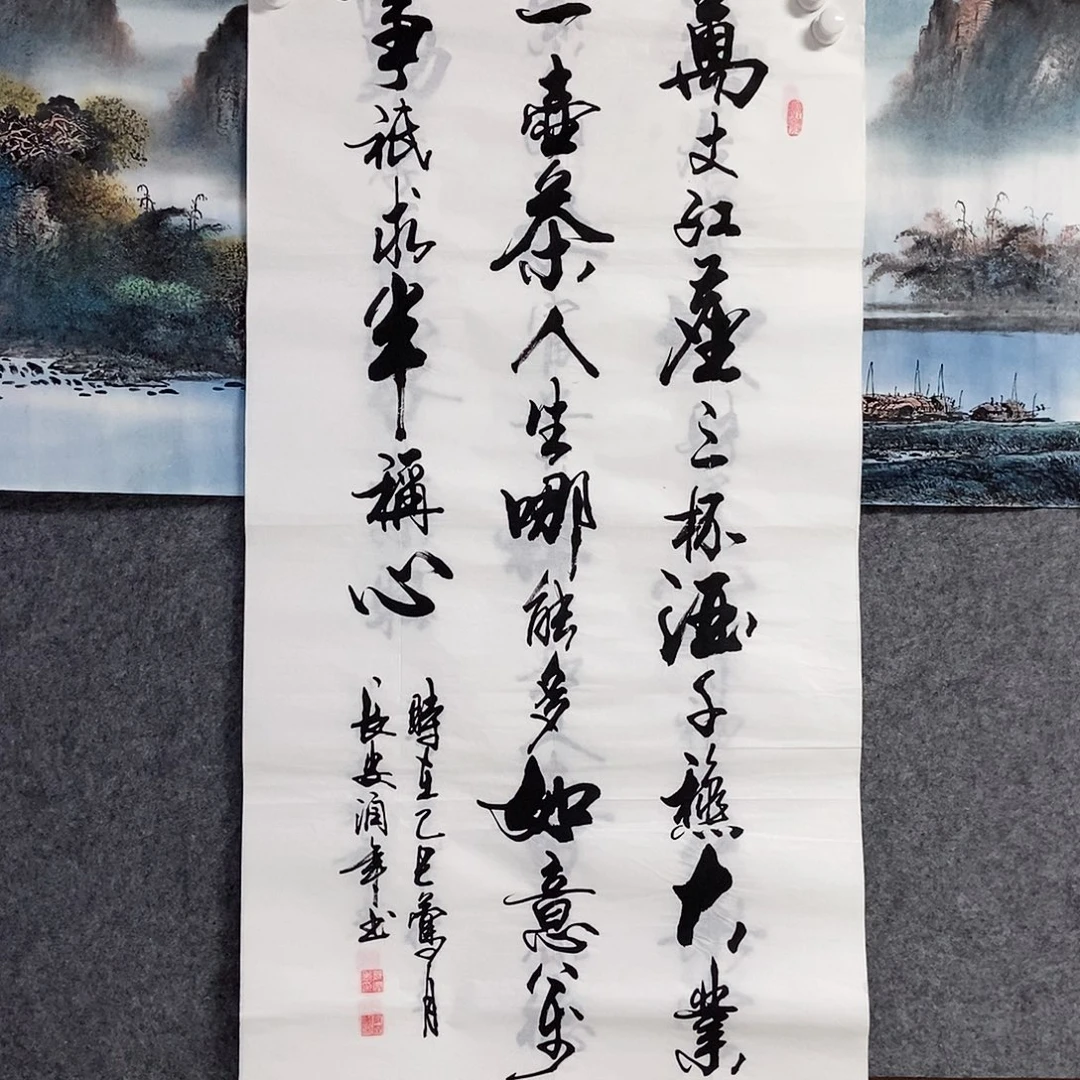 萬丈紅塵三杯酒千穐大業
一壺茶人生哪能多如意萬
事祇求半稱心
時在乙巳月
長安潤年书